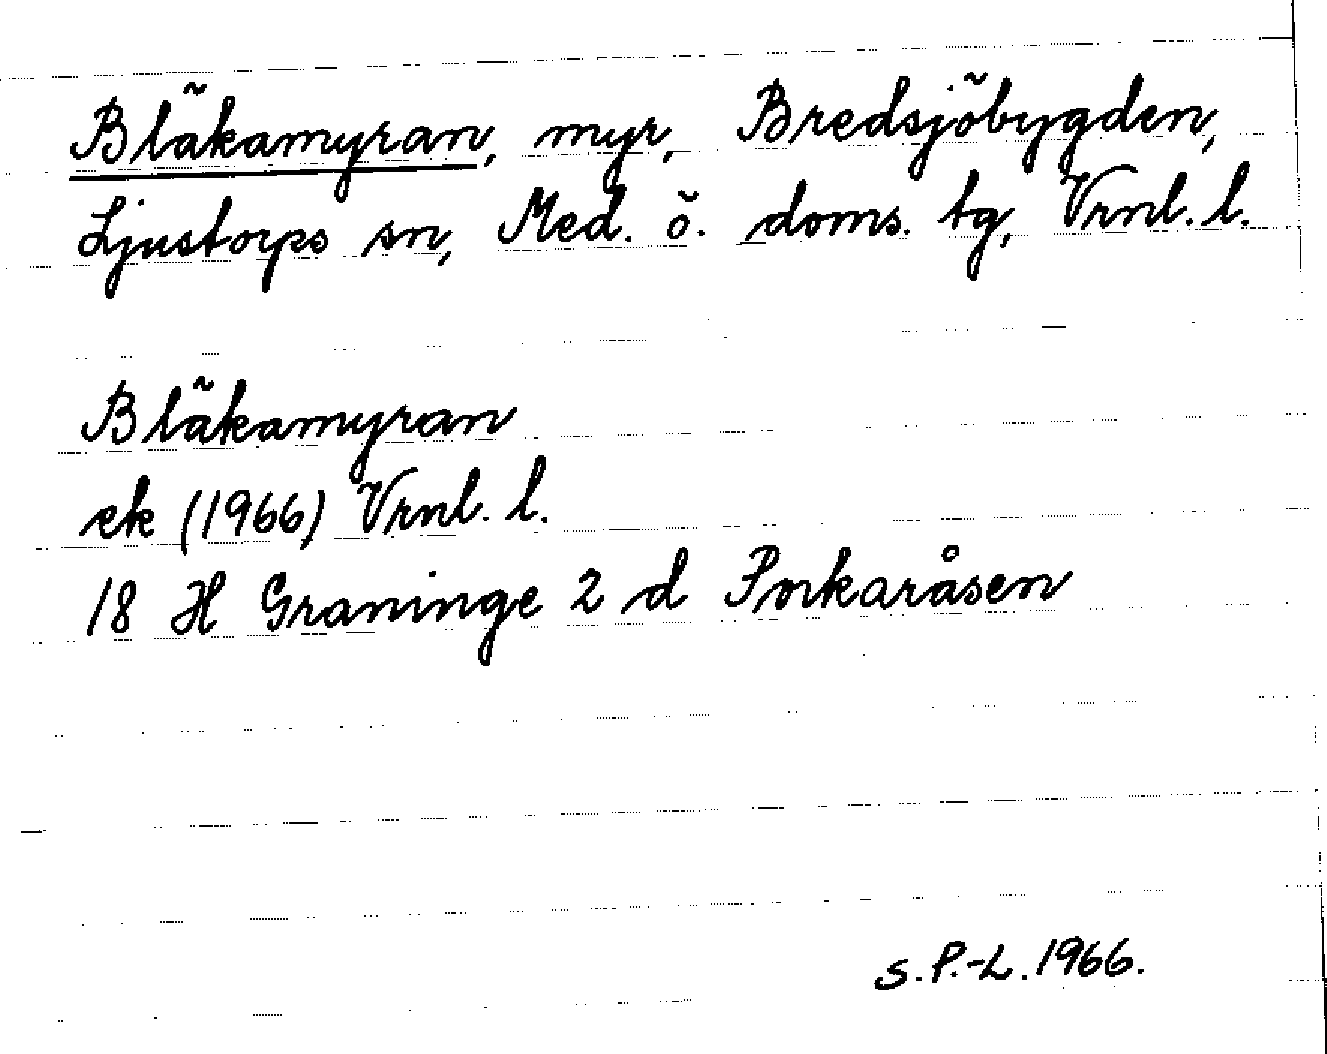 Bläkamyran, myr, Bredsjöbygden,
Ljustorps sn, Med. ö. doms. tg, Vrnl. l.
Bläkamyran
ek (1966) Vrnl. l.
18 H Graninge 2 d Porkaråsen
S. P.-L. 1966.